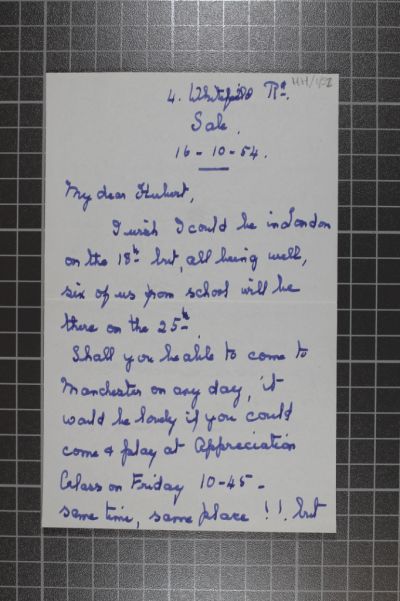 4. Whitefield Rd.
Sale.
16-10-54.
My dear Hubert,
I wish I could be in London
on the 18th but, all being well,
six of us from school will be
there on the 25th.
Shall you be able to come to
Manchester on any day, it
would be lovely if you could
come & play at Appreciation
Class on Friday 10-45-
same time, same place !!. but